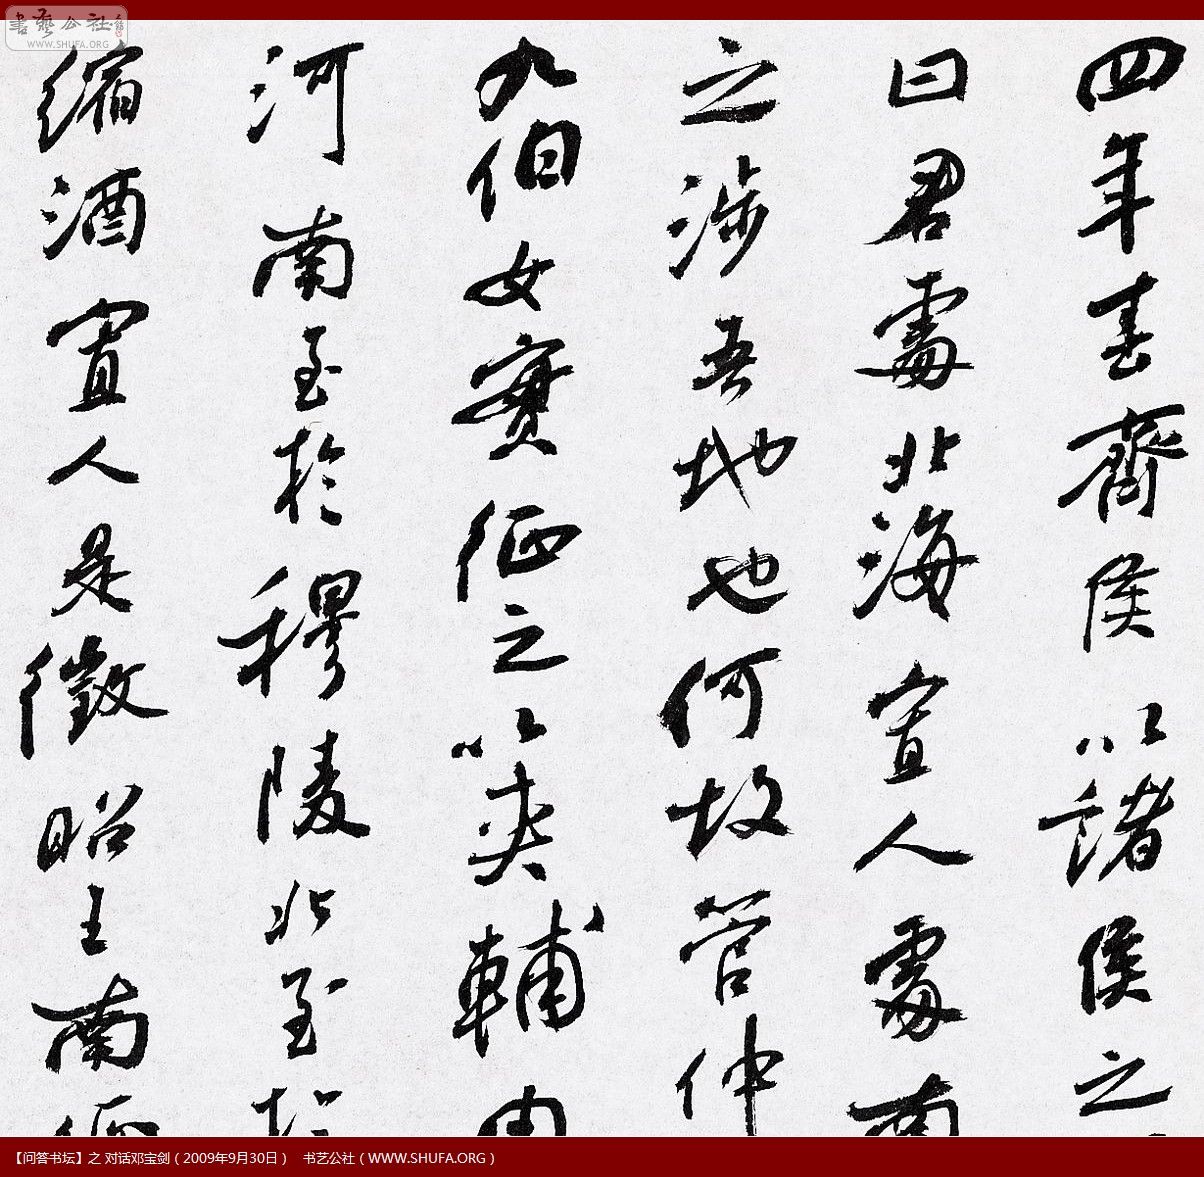 書藝公社
WWW.SHUFA.ORG
四年春齊侯以諸侯之
曰君處北海寡人處南
之涉吾地也何故管仲
九伯女實征之以夾輔周
河南至於穆陵北至於
縮酒寡人是徵昭王南征
【问答书坛】之 对话邓宝剑（2009年9月30日） 书艺公社（WWW.SHUFA.ORG）